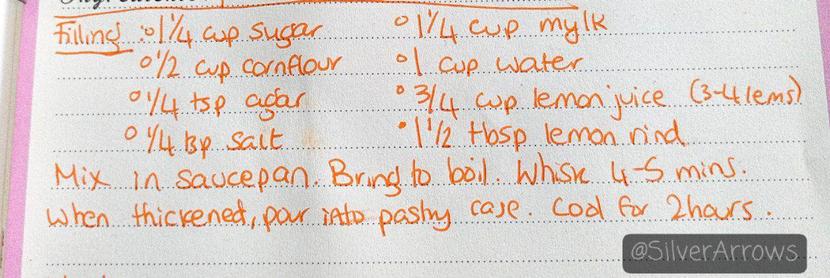 Filling :
° 1 1/4 cup sugar ° 1 1/4 cup mylk
° 1/2 cup cornflour ° 1 cup water
° 1/4 tsp agar ° 3/4 cup lemon juice (3-4 lems)
° 1/4 tsp salt ° 1 1/2 tbsp lemon rind
Mix in saucepan. Bring to boil. Whisk 4-5 mins.
When thickened, pour into pastry case. Cool for 2 hours.
@SilverArrows